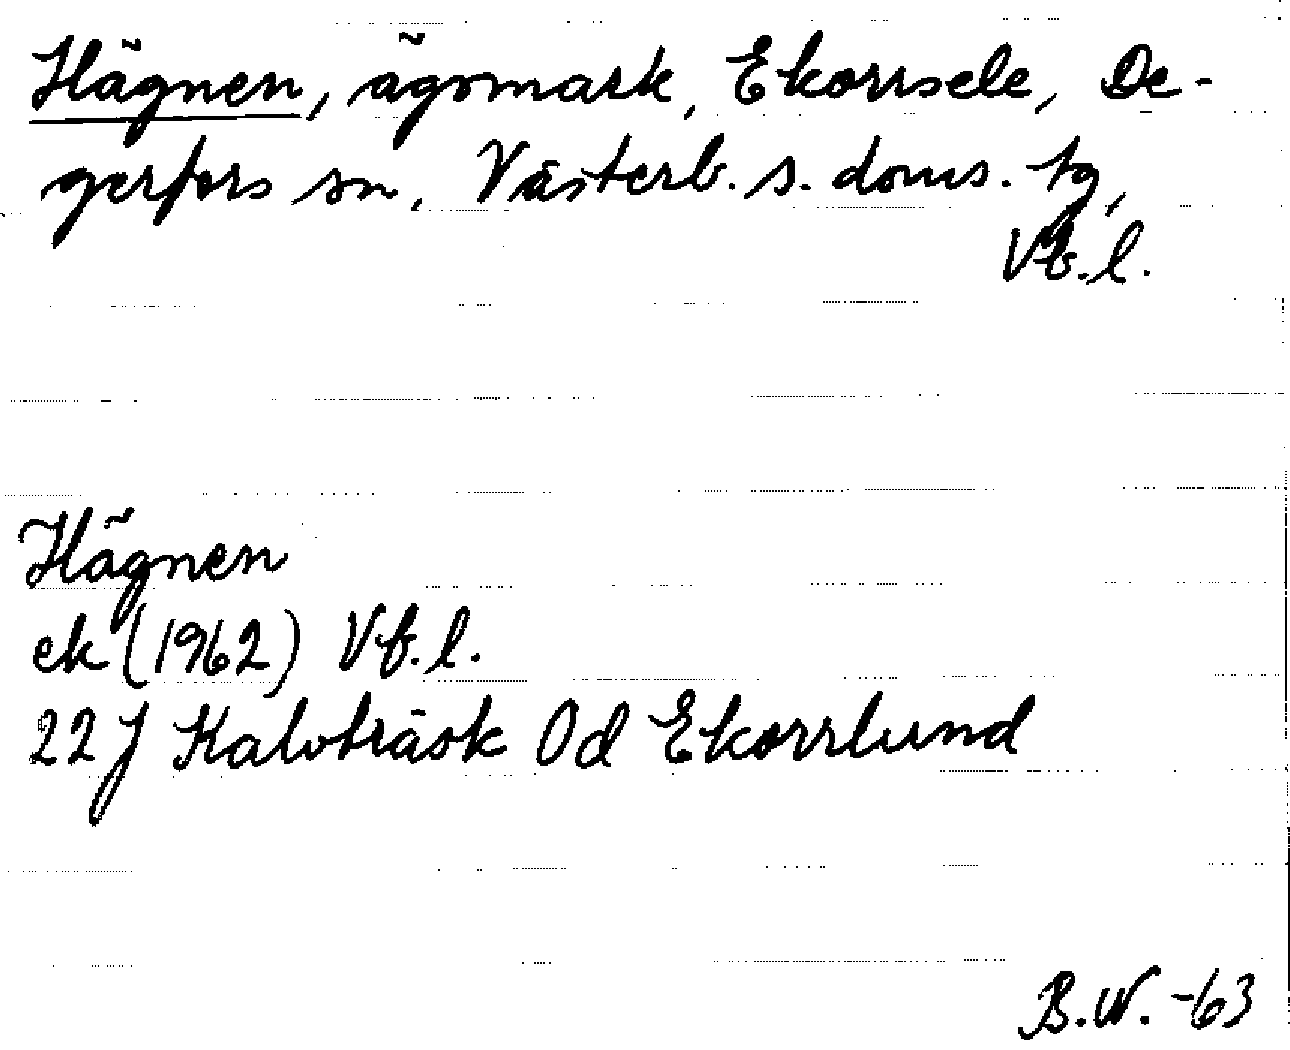 Hägnen, ägomark, Ekorrsele, De-
gerfors sn, Västerb. s. doms. tg,
Vb. l.
Hägnen
ek (1962) Vb. l.
22 J Kalvträsk 0d Ekorrlund
B.W. -63